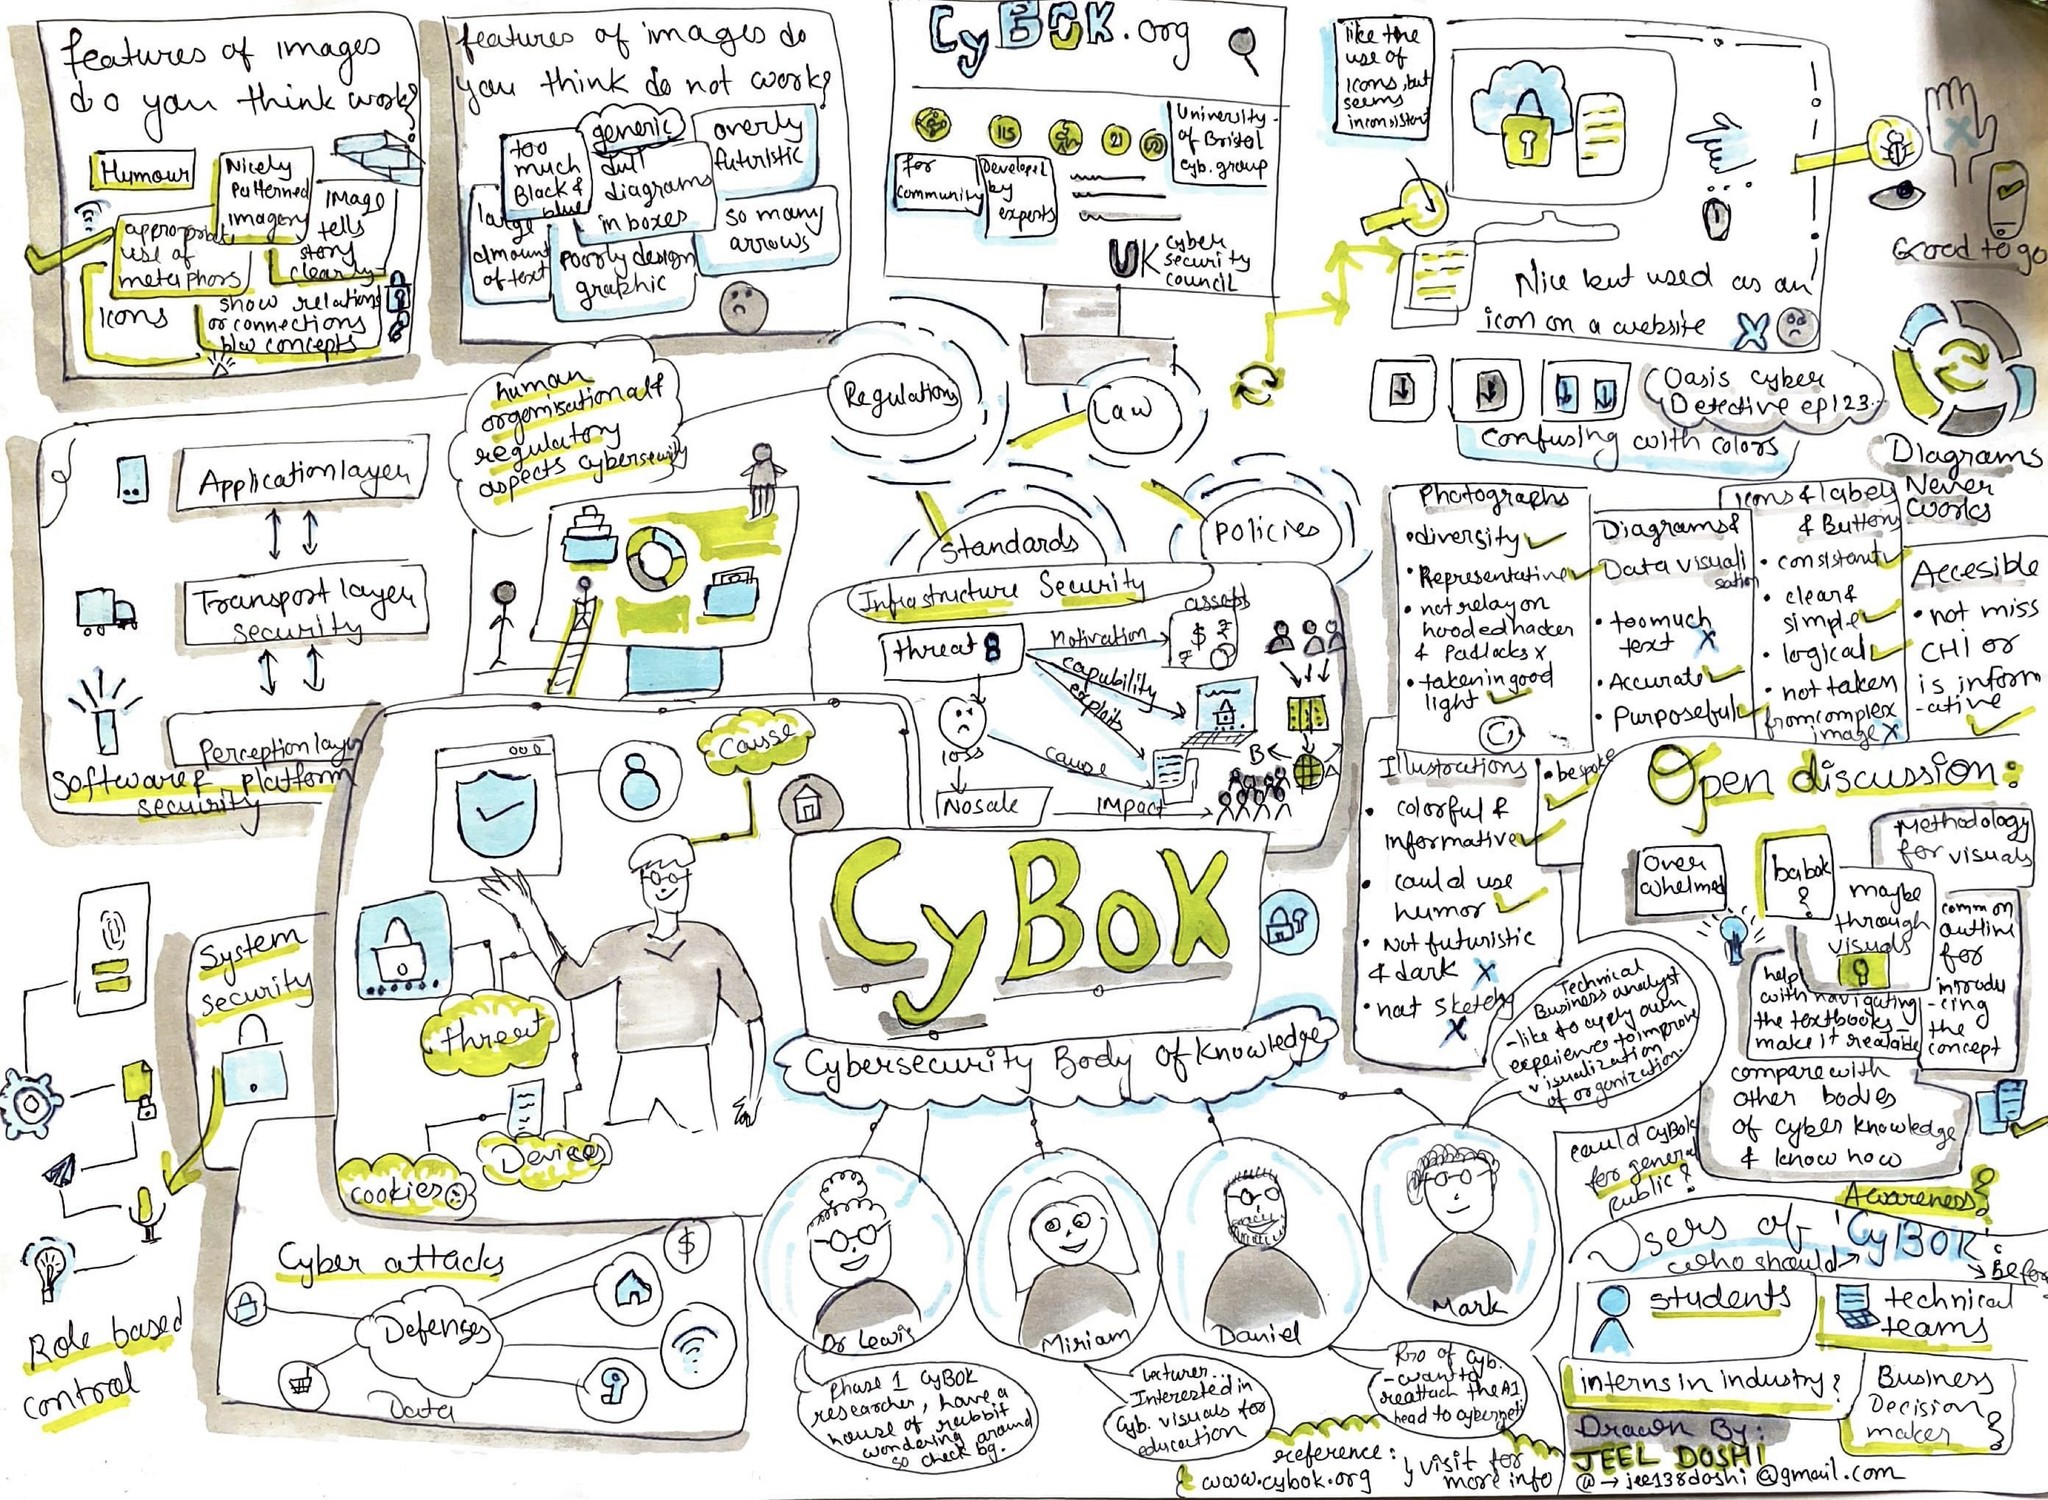 features of images
do you think work?
Humour
Nicely
patterned
imagery
IMAGE
tells
story
clearly
appropriate
use of
metaphors
Icons
show relations
or connections
b/w concepts
features of images do
you think do not work?
too
much
Black &
blue
generic
dull
diagrams
in boxes
overly
futuristic
large
amount
of text
poorly design
graphic
so many
arrows
CyBOK.org
115
21
for
community
Developed
by
experts
University
of Bristol
Cyb. group
UK cyber
security
council
like the
use of
icons, but
seems
inconsistent
Nice but used as an
icon on a website X
Good to go
Oasis cyber
Detective ep123...
confusing with colors
Diagrams
Never
Works
human
organisational &
regulatory
aspects cybersecurity
Regulations
Law
Standards
Policies
Application layer
Transport layer
security
Perception layer
Software & platform
security
Infrastructure Security
threat
Motivation
assets
capability
exploits
loss
cause
No sale
impact
B
A
Photographs
• diversity
• Representative
• not relay on
hooded hacker
& Padlocks x
• taken in good
light
Diagrams &
Data visuali
sation
• too much
text X
• Accurate
• Purposeful
Icons & labels
& Buttons
• consistant
• clear &
simple
• logical
• not taken
from complex
image X
Accesible
• not miss
CHI or
is inform
-ative
Illustrations
• bespoke
• colorful &
informative
• could use
humor
• Not futuristic
& dark X
• not sketchy
X
Open discussion:
Over
whelmed
babok
?
Methodology
for visuals
maybe
through
visuals
common
outline
for
introdu
-cing
the
concept
help
with navigating
the textbooks -
make it readable
compare with
other bodies
of cyber knowledge
& know how
Cause
threat
Devices
cookies
CyBOK
Cybersecurity Body of Knowledge
System
security
Role based
control
Cyber attacks
Defenses
Data
$
Technical
Business analyst
- like to apply own
experience to improve
visualization
of organization.
Dr Lewis
Miriam
Daniel
Mark
phase 1 CyBOK
researcher, have a
house of rabbit
wondering around
so check bg.
Lecturer...
Interested in
Cyb. visuals for
education
of Cyb.
- want to
reattach the AI
head to cyberneti
reference:
www.cybok.org
visit for
more info
could CyBOK
for general
public?
Awareness?
Users of CyBOK
who should
Before
students
technical
teams
interns in industry?
Business
Decision
maker ?
Drawn By:
JEEL DOSHI
@ → jeel38doshi@gmail.com